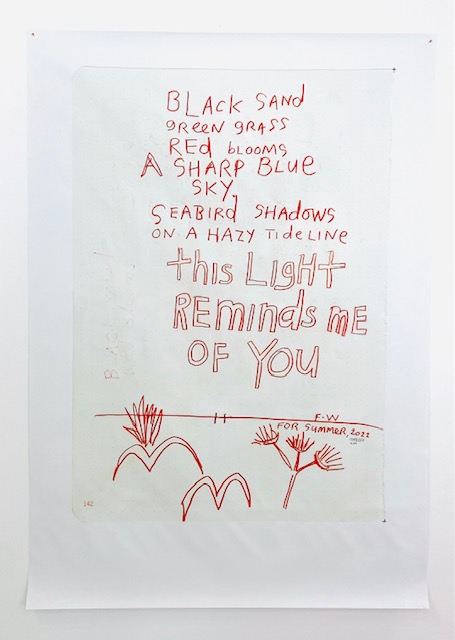 BLACK SAND
GREEN GRASS
RED BLOOMS
A SHARP BLUE
SKY,
SEABIRD SHADOWS
ON A HAZY TIDELINE
THIS LIGHT
REMINDS ME
OF YOU
F-W
FOR SUMMER, 2022
142